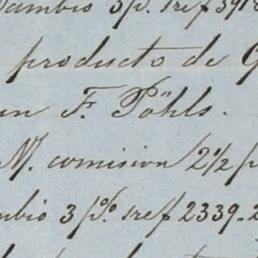 Cambio 3 p%. s/ref 391
producto de G
en F. Pöhls.
M. comision 2½ p
mbio 3 p%. s/ref 2339.2